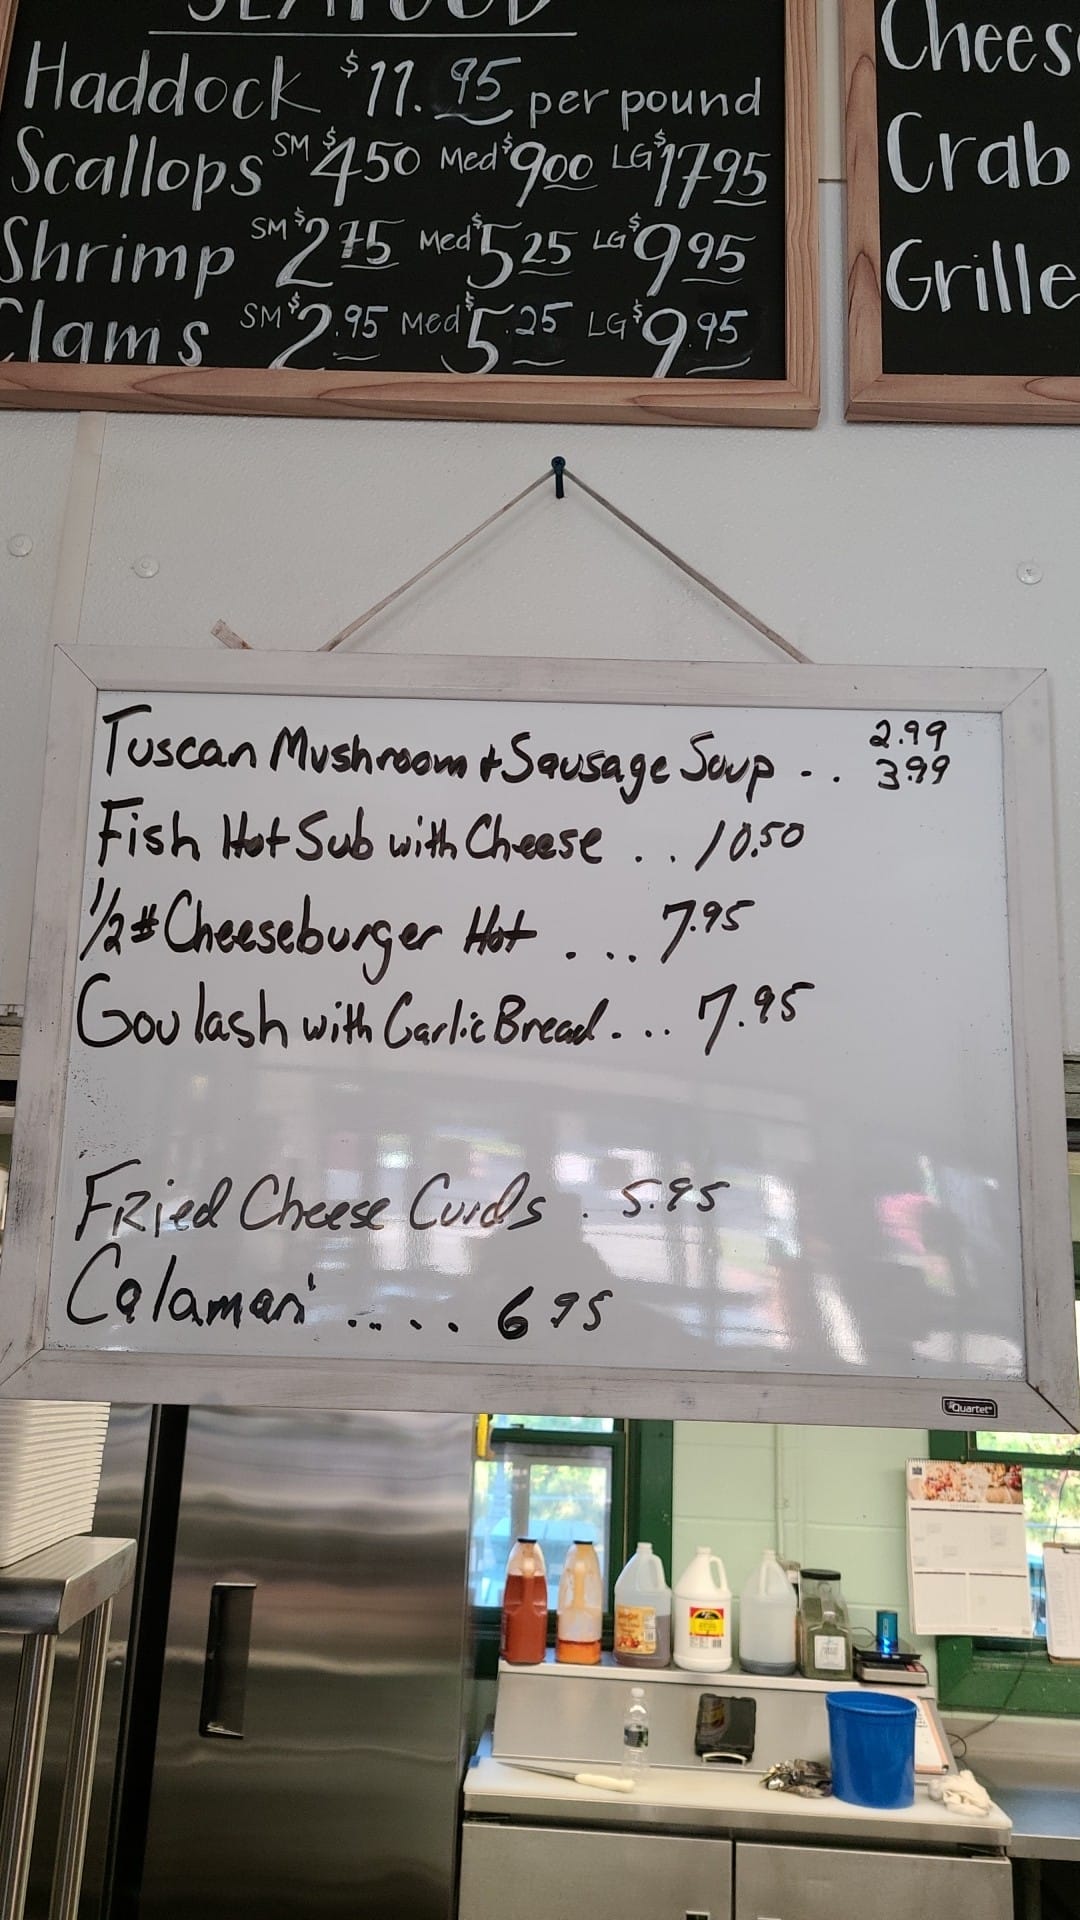 SEAFOOD
Haddock $11.95 per pound
Scallops SM $4.50 Med $9.00 LG $17.95
Shrimp SM $2.75 Med $5.25 LG $9.95
Clams SM $2.95 Med $5.25 LG $9.95
Chees
Crab
Grille
Tuscan Mushroom + Sausage Soup .. 2.99
3.99
Fish Hot Sub with Cheese ... 10.50
1/2# Cheeseburger Hot .... 7.95
Goulash with Garlic Bread.... 7.95
Fried Cheese Curds . 5.95
Calamari ..... 6 95
Quartet